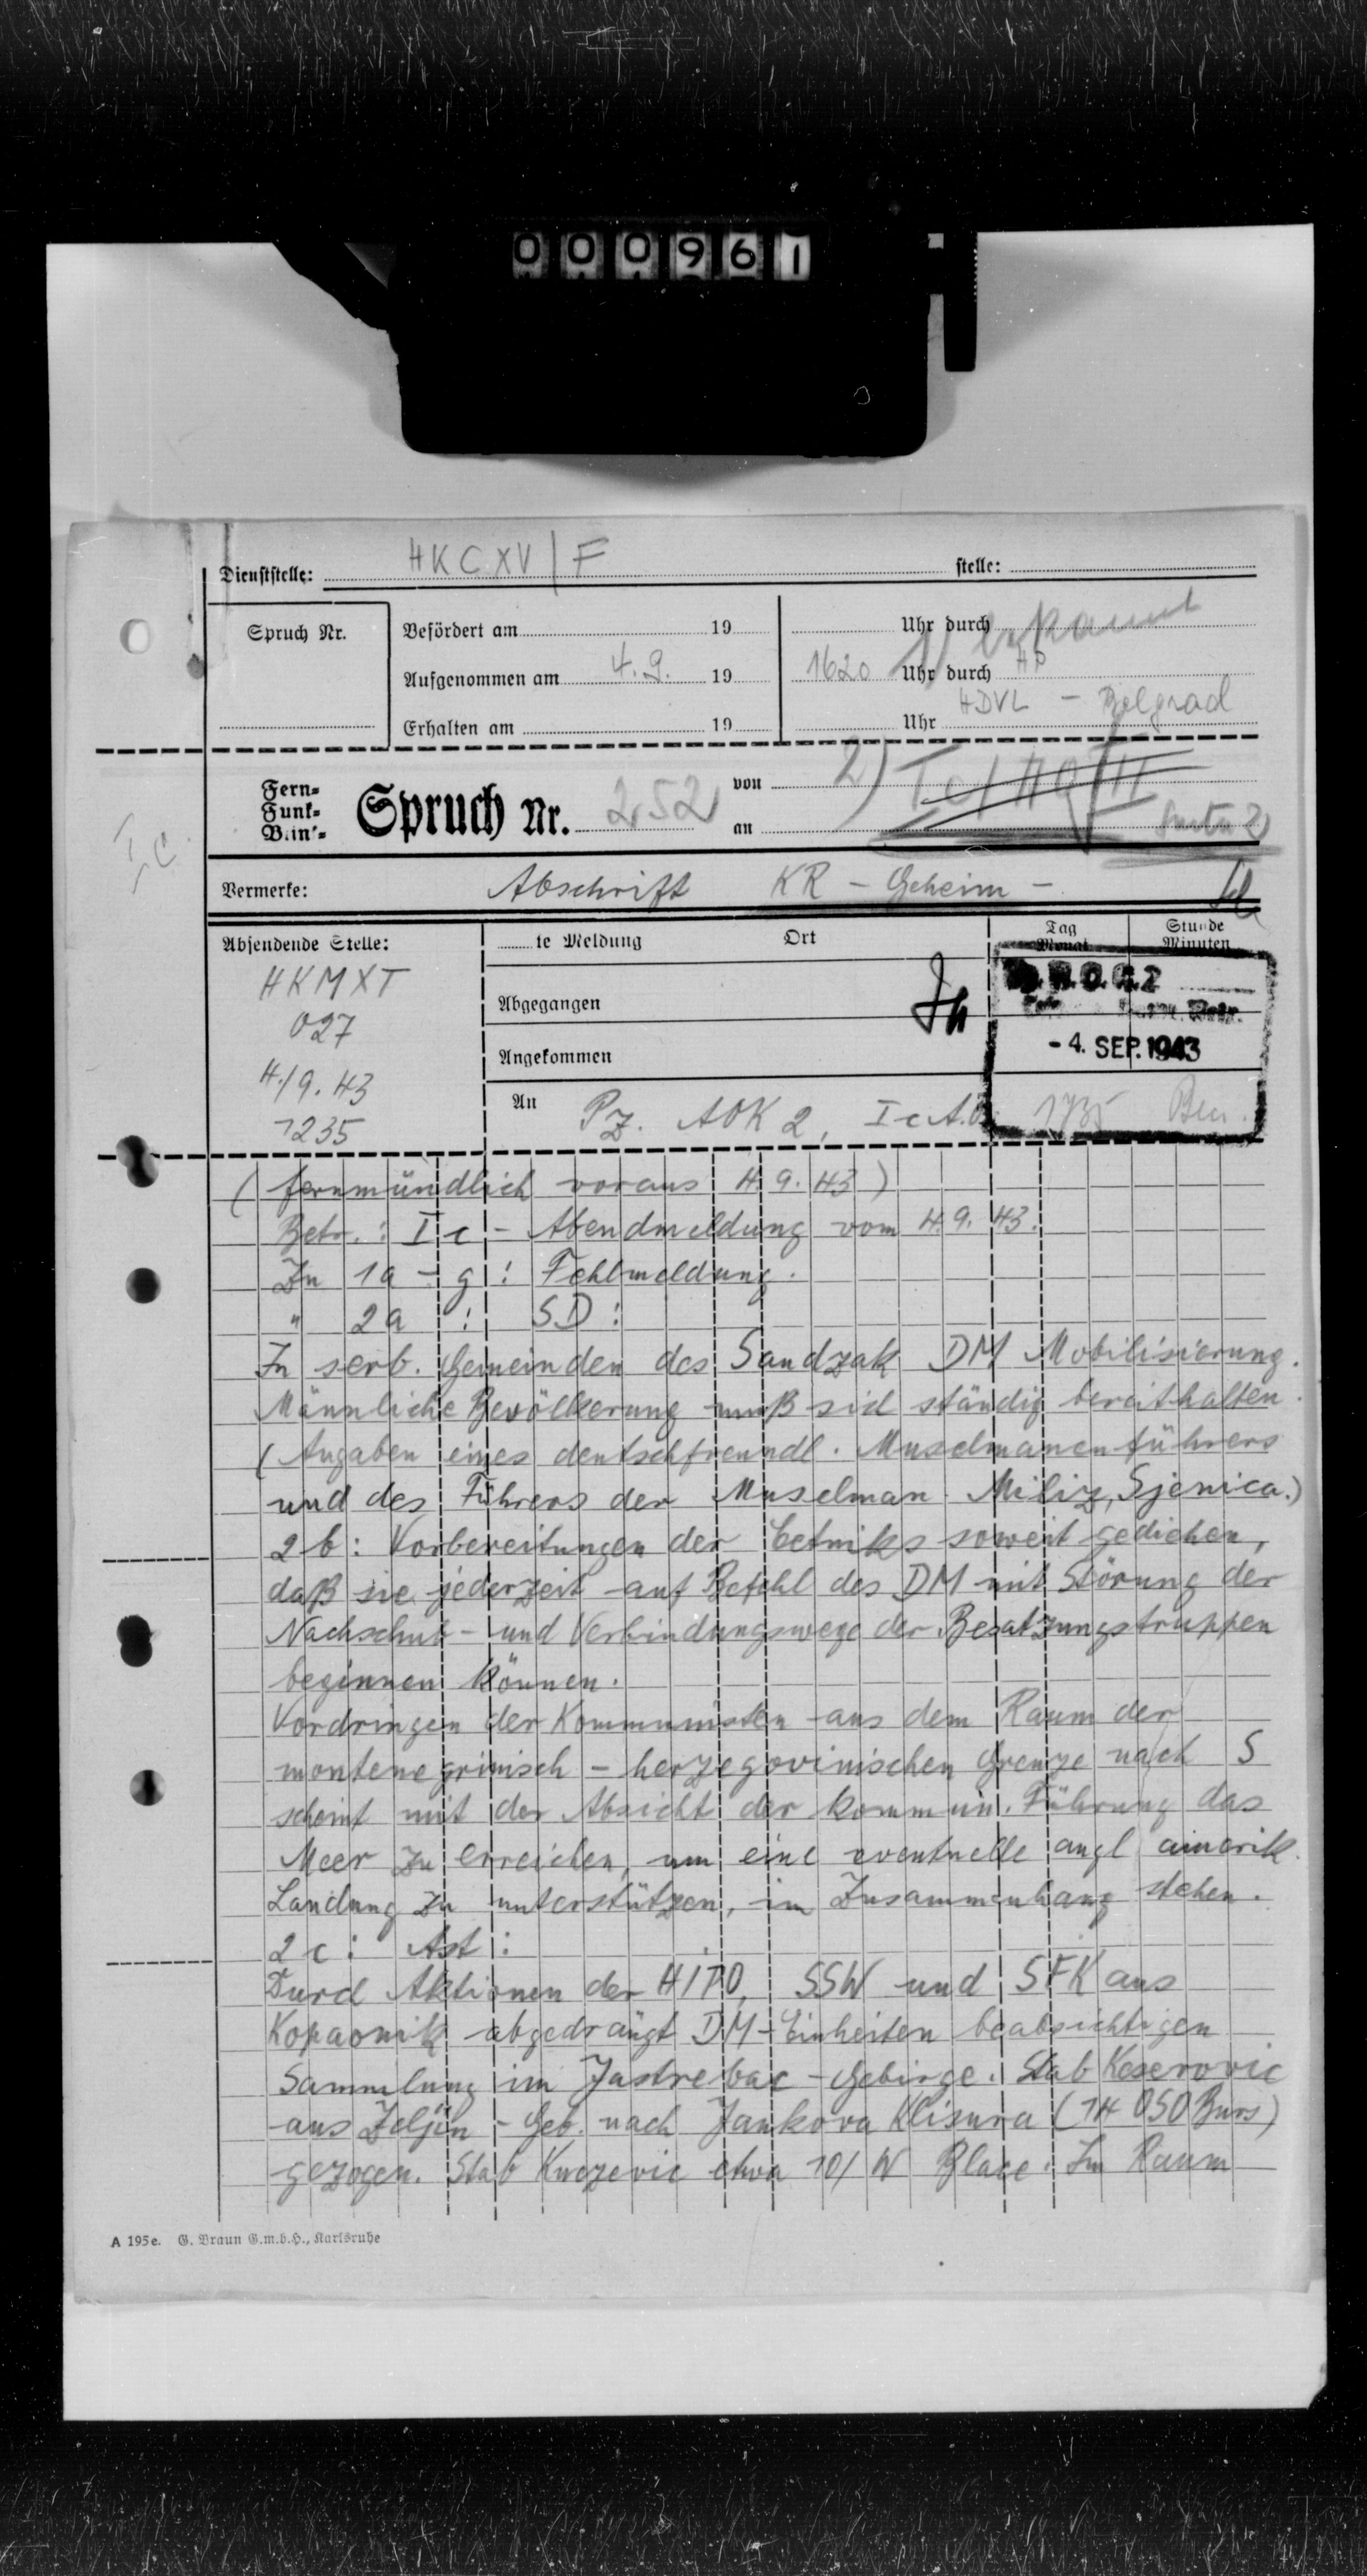 000961
Dienststelle: HKCXV/F stelle:
Spruch Nr.
Befördert am 19 Uhr durch
Aufgenommen am 4.9. 19 1620 Uhr durch HP
Erhalten am 19 Uhr HDVL - Belgrad
Fern-
Funk-
Blink-
Spruch Nr. 252
von
an
2) Ic/AO/III
Ic
Vermerke: Abschrift KR - Geheim -
Absendende Stelle:
HKMXT
027
4./9.43
1235
te Meldung Ort
Tag
Monat
Stunde
Minuten
Abgegangen
Angekommen
- 4. SEP. 1943
1735
An Pz. AOK 2, Ic A.O.
( fernmündlich voraus 4.9.43 )
Betr.: Ic - Abendmeldung vom 4.9.43.
Zu 1a - g : Fehlmeldung.
" 2a : SD :
In serb. Gemeinden des Sandzak DM Mobilisierung.
Männliche Bevölkerung muß sich ständig bereithalten.
( Angaben eines deutschfreundl. Muselmanenführers
und des Führers der Muselman. Miliz, Sjenica.)
2b: Vorbereitungen der Cetniks soweit gediehen,
daß sie jederzeit auf Befehl des DM mit Störung der
Nachschub- und Verbindungswege der Besatzungstruppen
beginnen können.
Vordringen der Kommunisten aus dem Raum der
montenegrinisch - herzegovinischen Grenze nach S
scheint mit der Absicht der kommun. Führung das
Meer zu erreichen, um eine eventuelle angl amerik.
Landung zu unterstützen, im Zusammenhang stehen.
2c: Ast :
Durch Aktionen der HIPO, SSW und SFK aus
Kopaonik abgedrängt DM-Einheiten beabsichtigen
Sammlung im Jastrebac-Gebirge. Stab Keserovic
aus Zeljin - Geb. nach Jankova Klisura (14 050 Burs)
gezogen. Stab Knezevic etwa 10/ W Blace. Im Raum
A 195e. G. Braun G.m.b.H., Karlsruhe